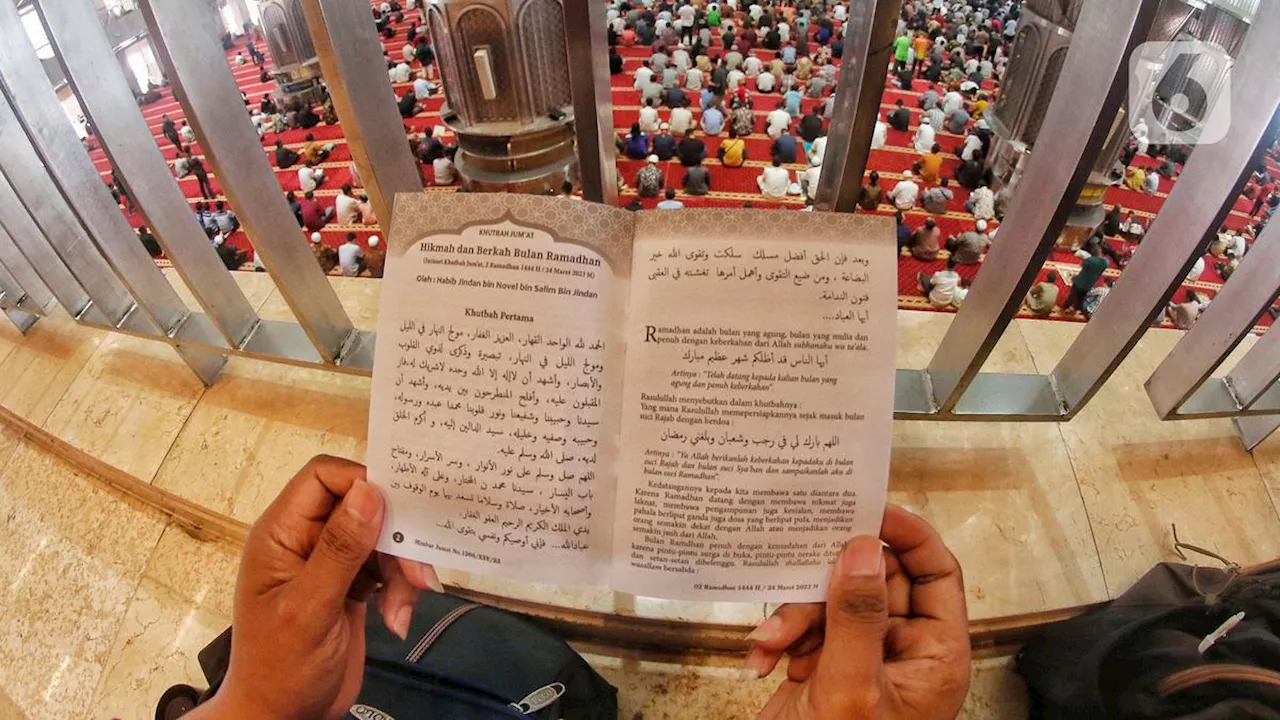 KHUTBAH JUM'AT
Hikmah dan Berkah Bulan Ramadhan
(Intisari Khutbah Jum'at, 2 Ramadhan 1444 H / 24 Maret 2023 M)
Oleh : Habib Jindan bin Novel bin Salim Bin Jindan
Khutbah Pertama
الحمد لله الواحد القهار، العزيز الغفار، مولج النهار في الليل
ومولج الليل في النهار، تبصيرة وذكرى لذوي القلوب
والأبصار، وأشهد أن لاإله إلا الله وحده لاشريك له،فاز
المقبلون عليه، وأفلح المنطرحون بين يديه، وأشهد أن
سيدنا وحبيبنا وشفيعنا ونور قلوبنا محمدا عبده ورسوله،
وحبيبه وصفيه وخليله، سيد الدالين إليه، و أكرم الخلق
لديه، صلى الله وسلم عليه.
اللهم صل وسلم على نور الأنوار ، وسر الأسرار، ومفتاح
باب اليسار ، سيدنا محمد ن المختار، وعلى آله الأطهار،
وأصحابه الأخيار، صلاة وسلاما نسعد بهما يوم الوقوف بين
يدي الملك الكريم الرحيم العفو الغفار.
عبادالله... فإني أوصيكم ونفسي بتقوى الله...
2
Mimbar Jumat No.
وبعد فإن الحق أفضل مسلك سلكت وتقوى الله خير
البضاعة ، ومن ضيع التقوى وأهمل أمرها تغشته في العقبى
فنون الندامة.
أيها العباد....
Ramadhan adalah bulan yang agung, bulan yang mulia dan
penuh dengan keberkahan dari Allah subhanahu wa ta'ala.
أيها الناس قد أظلكم شهر عظيم مبارك
Artinya : "Telah datang kepada kalian bulan yang
agung dan penuh keberkahan".
Rasulullah menyebutkan dalam khutbahnya :
Yang mana Rasulullah mempersiapkannya sejak masuk bulan
suci Rajab dengan berdoa :
اللهم بارك لي في رجب وشعبان وبلغني رمضان
Artinya : "Ya Allah berikanlah keberkahan kepadaku di bulan
suci Rajab dan bulan suci Sya'ban dan sampaikanlah aku di
bulan suci Ramadhan".
Kedatangannya kepada kita membawa satu diantara dua.
Karena Ramadhan datang dengan membawa nikmat juga
laknat, membawa pengampunan juga kesialan, membawa
pahala berlipat ganda juga dosa yang berlipat pula, menjadikan
orang semakin dekat dengan Allah atau menjadikan orang
semakin jauh dari Allah.
Bulan Ramdhan penuh dengan kemudahan dari Allah
karena pintu-pintu surga di buka, pintu-pintu neraka
dan setan-setan dibelenggu. Rasulullah shallallahu
wasallam bersabda :
02 Ramadhan 1444 H / 24 Maret 2023 M
6